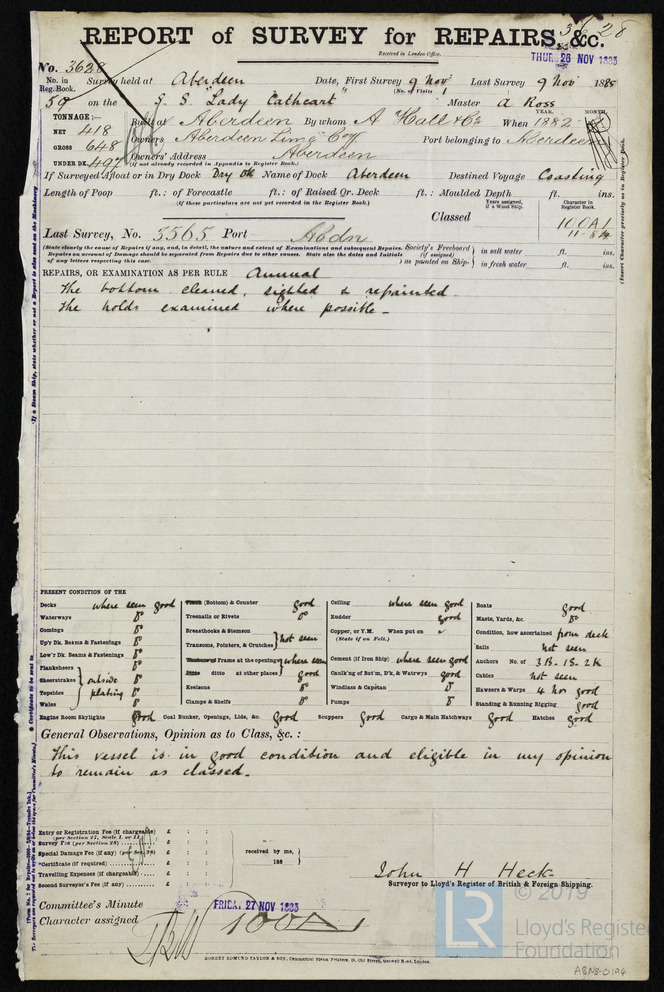 3628
REPORT of SURVEY for REPAIRS, &c.
Received in London Office.
THURS 26 NOV 1885
No. 3628
No. in Reg. Book. Survey held at Aberdeen Date, First Survey 9 Nov Last Survey 9 Nov 1885
(No. of Visits)
59 on the S. S. "Lady Cathcart" Master A Ross
TONNAGE:— Built at Aberdeen By whom A Hall & Co When 1882
YEAR. MONTH.
NET 418
GROSS 648 Owners Aberdeen Lime Coy Port belonging to Aberdeen
UNDER DK. 497 Owners' Address Aberdeen
(if not already recorded in Appendix to Register Book.)
If Surveyed Afloat or in Dry Dock Dry Dk Name of Dock Aberdeen Destined Voyage Coasting
Length of Poop ft.: of Forecastle ft.: of Raised Qr. Deck ft.: Moulded Depth ft. ins.
(if these particulars are not yet recorded in the Register Book.)
Years assigned, if a Wood Ship.
Character in Register Book.
Classed 100A1
Last Survey, No. 3565 Port Abdn
(State clearly the cause of Repairs if any, and, in detail, the nature and extent of Examinations and subsequent Repairs. Repairs on account of Damage should be separated from Repairs due to other causes. State also the dates and Initials of any letters respecting this case.)
Society's Freeboard (if assigned) as painted on Ship— in salt water ft. ins.
in fresh water ft. ins.
(Insert Character precisely as in Register Book.)
REPAIRS, OR EXAMINATION AS PER RULE Annual
The bottom cleaned, sighted & repainted.
The holds examined where possible.
PRESENT CONDITION OF THE
Decks where seen good
Waterways Do
Comings Do
Up'r Dk. Beams & Fastenings Do
Low'r Dk. Beams & Fastenings Do
Planksheers
Sheerstrakes outside
Topsides plating Do
Wales Do
Engine Room Skylights good Coal Bunker, Openings, Lids, &c. good Scuppers good Cargo & Main Hatchways good Hatches good
Plank (Bottom) & Counter good
Treenails or Rivets Do
Breasthooks & Stemson
Transoms, Pointers, & Crutches not seen
Frame at the openings where seen
ditto at other places good
Keelsons Do
Clamps & Shelfs Do
Ceiling where seen good
Rudder good
Copper, or Y.M. When put on
(State if on Felt.)
Cement (if Iron Ship) where seen good
Caulk'ng of Bot'm, D'k, & Watrwys good
Windlass & Capstan Do
Pumps Do
Boats good
Masts, Yards, &c. Do
Condition, how ascertained from deck
Sails not seen
Anchors No. of 3B. 1S. 2K
Cables not seen
Hawsers & Warps 4 nos good
Standing & Running Rigging good
General Observations, Opinion as to Class, &c.:
This vessel is in good condition and eligible in my opinion
to remain as classed.
Entry or Registration Fee (if chargeable) £ : :
Survey Fee (per Section 28) £ : :
Special Damage Fee (if any) (per Sec. 28) £ : :
*Certificate (if required) £ : :
Travelling Expenses (if chargeable) £ : :
Second Surveyor's Fee (if any) £ : :
received by me,
188
John H Heck
Surveyor to Lloyd's Register of British & Foreign Shipping.
Committee's Minute FRIDAY 27 NOV 1885
Character assigned 100A1
ROBERT EDMUND TAYLOR & SON, Commercial Steam Printers, 19, Old Street, Goswell Road, London.
© 2019
LR
Lloyd's Register
Foundation
ABNS-0194